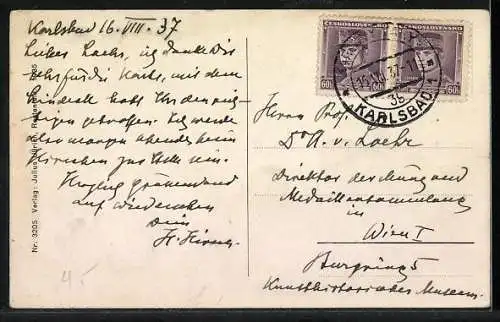 Karlsbad 16. VIII. 37
Lieber Loehr, ich danke Dir
sehr für die Karte, mit dem
hast Du den
getroffen. Ich werde
also morgen abends beim
Hirschen zur Stelle sein.
Herzlich grüssend und
auf Wiedersehen
Dein
H.
Nr. 3205 Verlag: Julius
ČESKOSLOVENSKO
ČESKOSLOVENSKO
60h
60
KARLSBAD
3b
Herrn Prof.
Dr. A. v. Loehr
Direktor der Münz und
Medaillensammlung
in
Wien I
Burgring 5
Kunsthistorisches Museum
4.-